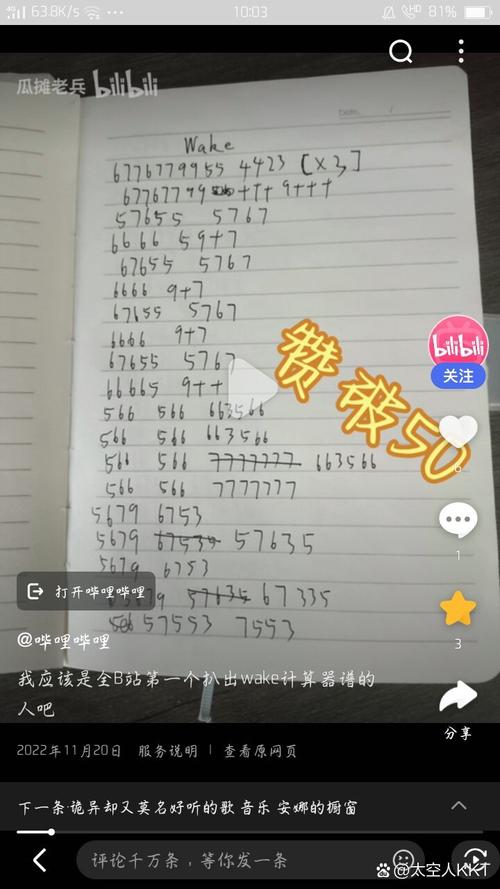 63.8K/s ... 10:03 HD 81%
瓜摊老兵 bilibili
Date. /
Wake
6776779955 4423 [×2]
67767799 +++ 9+++
57655 5767
6666 59+7
67655 5767
6666 9+7
67655 5767
6666 9+7
67655 5767
66665 9++
566 566 663566
566 566 663566
566 566 7777777 663566
566 566 7777777
5679 6753
5679 67535 57635
5679 6753
57635 67335
57553 7553
赞破50
bilibili
关注
6
1
3
分享
打开哔哩哔哩
@哔哩哔哩
我应该是全B站第一个扒出wake计算器谱的
人吧
2022年11月20日 服务说明 | 查看原网页
下一条·诡异却又莫名好听的歌 音乐 安娜的橱窗
评论千万条，等你发一条
@太空人KKT